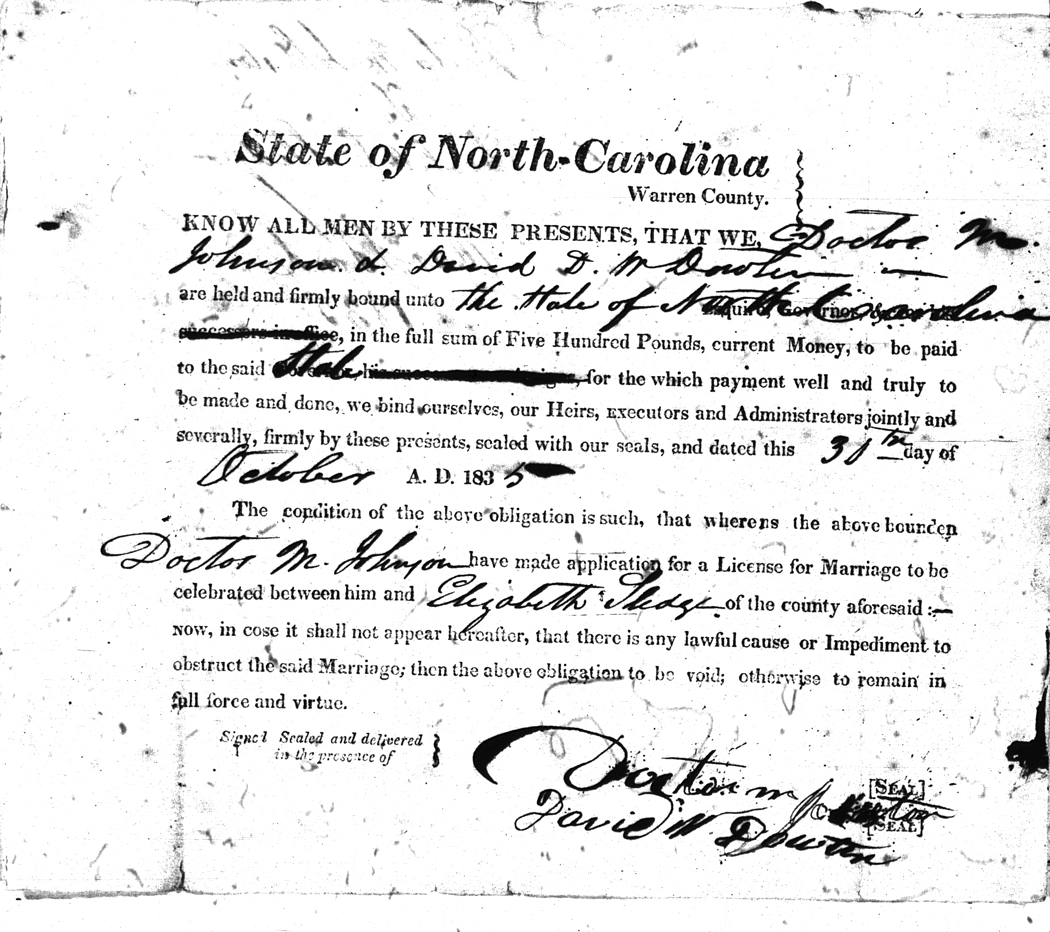 State of North-Carolina
Warren County.
KNOW ALL MEN BY THESE PRESENTS, THAT WE, Doctor M.
Johnson & David D. W Dowtin
are held and firmly bound unto the State of North Carolina
successors in office, in the full sum of Five Hundred Pounds, current Money, to be paid
to the said State for the which payment well and truly to
be made and done, we bind ourselves, our Heirs, Executors and Administrators jointly and
severally, firmly by these presents, sealed with our seals, and dated this 30th day of
October A. D. 1835
The condition of the above obligation is such, that wherens the above bounden
Doctor M. Johnson have made application for a License for Marriage to be
celebrated between him and Elizabeth Sledge of the county aforesaid :—
NOW, in cose it shall not appear hereafter, that there is any lawful cause or Impediment to
obstruct the said Marriage; then the above obligation to be void; otherwise to remain in
full force and virtue.
Signel Sealed and delivered
in the presence of
Doctor M [SEAL]
David W Dowtin [SEAL]